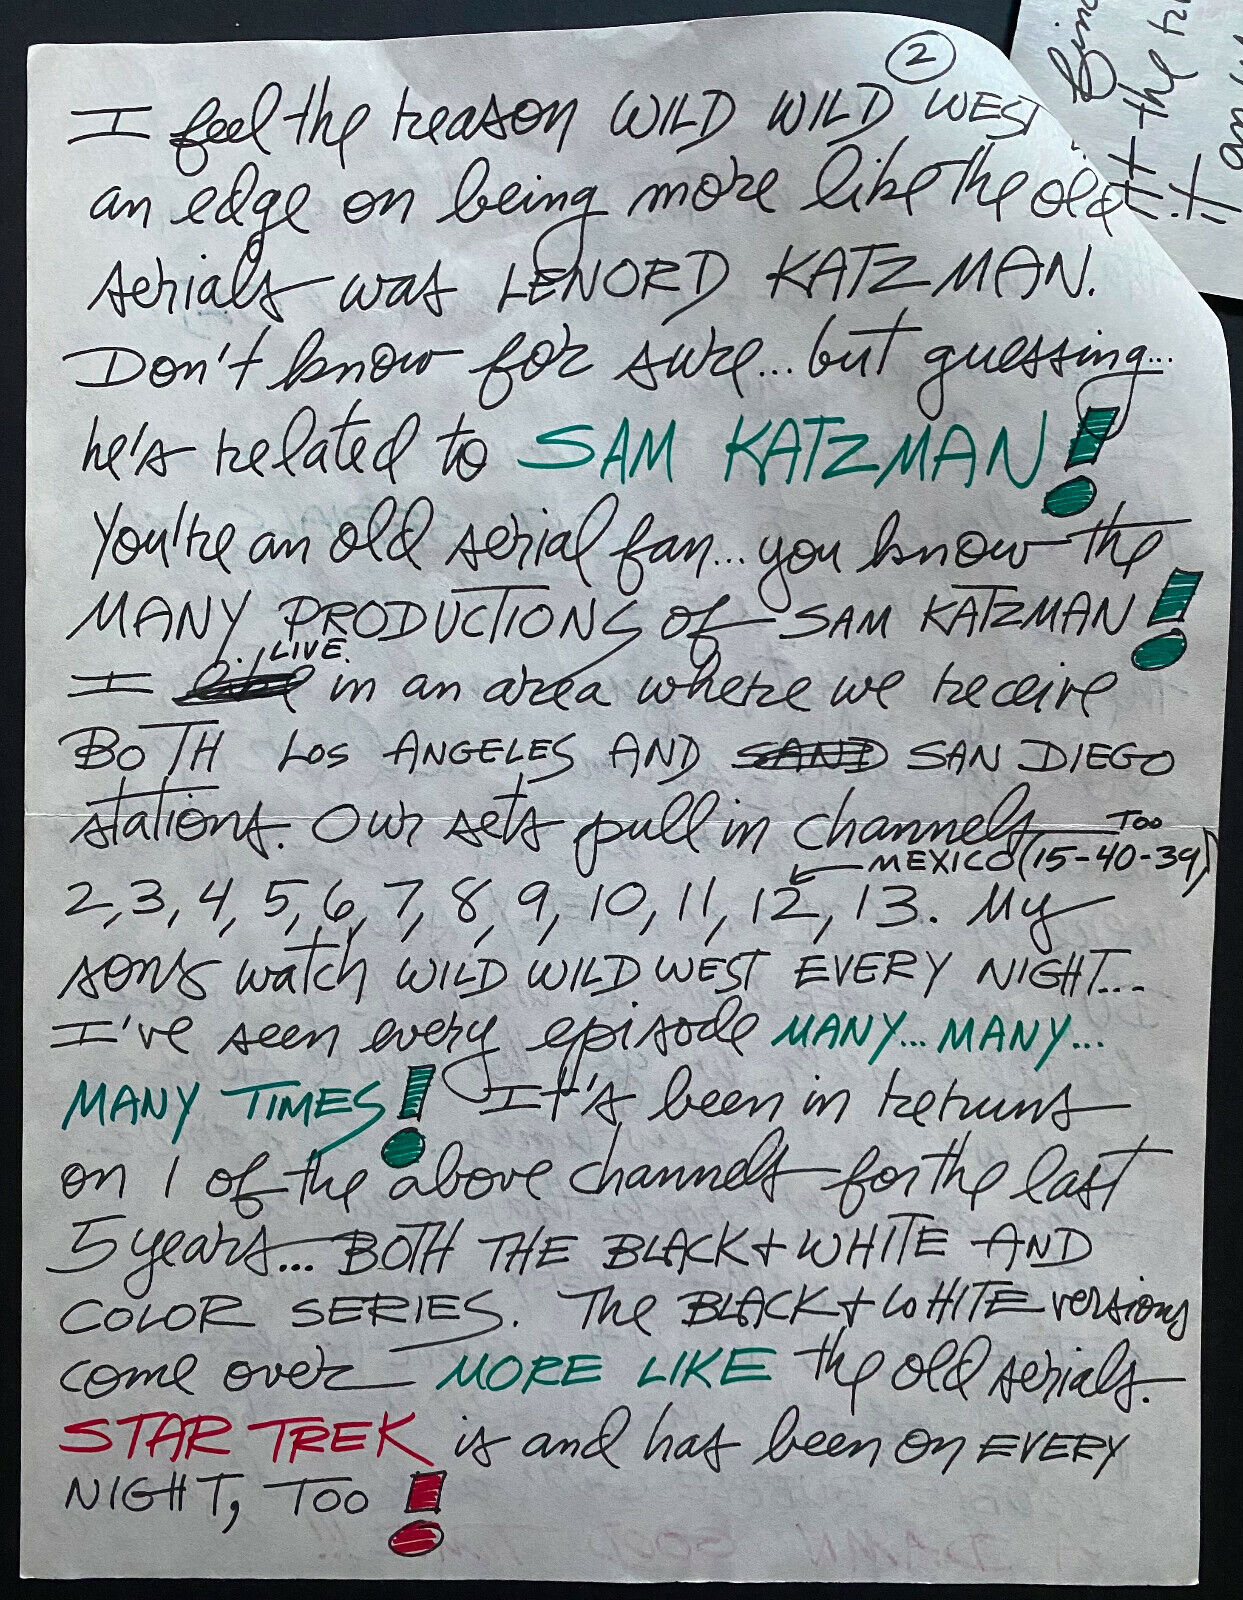 2
I feel the reason WILD WILD WEST
an edge on being more like the old
serials was LENORD KATZMAN.
Don't know for sure... but guessing...
he's related to SAM KATZMAN!
You're an old serial fan... you know the
MANY PRODUCTIONS of SAM KATZMAN!
I LIVE in an area where we receive
BOTH LOS ANGELES AND SAN DIEGO
stations. Our sets pull in channels TOO
MEXICO (15-40-39)
2, 3, 4, 5, 6, 7, 8, 9, 10, 11, 12, 13. My
sons watch WILD WILD WEST EVERY NIGHT...
I've seen every episode MANY... MANY...
MANY TIMES! It's been in reruns
on 1 of the above channels for the last
5 years... BOTH THE BLACK + WHITE AND
COLOR SERIES. The BLACK + WHITE versions
come over MORE LIKE the old serials.
STAR TREK is and has been on EVERY
NIGHT, TOO!